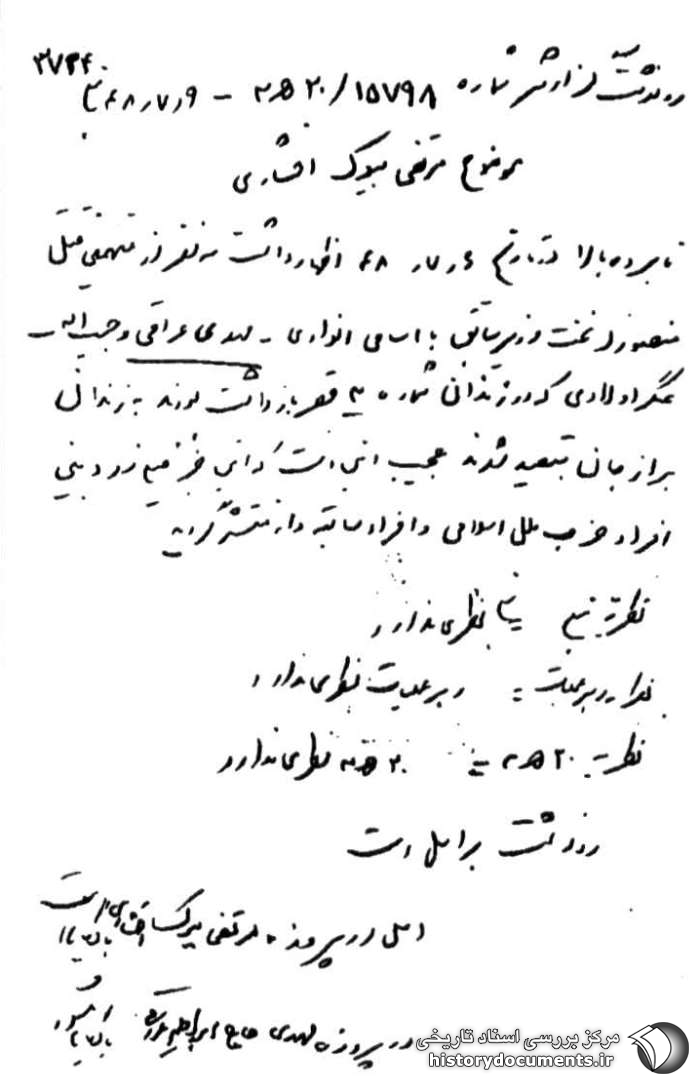 ۳۷۴۴۰
رونوشت گزارش شماره ۱۵۷۹۸/ ۲۰ ﻫ ۳ – ۴۸٫۷٫۹
موضوع مرتضی نیک افشاری
نامبرده بالا در تاریخ ۴۸٫۷٫۶ اظهار داشت سه نفر از متهمین قتل
منصور نخست وزیر سابق با اسامی انواری – مهدی عراقی و حبیب اله
عسگراولادی که در زندان شماره ۳ قصر بازداشت بودند به زندان
برازجان تبعید شدند عجیب این است که این خبر خیلی زود بین
افراد حزب ملل اسلامی و افراد سابقه دار منتشر گردید
نظریه شنبه نظری ندارد
نظریه رهبر عملیات = رهبر عملیات نظری ندارد
نظریه ۲۰ ﻫ ۳ = ۲۰ ﻫ ۳ نظری ندارد
رونوشت برابر اصل است
اصل در پرونده مرتضی نیک افشاری است
و
در پرونده مهدی حاج ابراهیم عراقی
مرکز بررسی اسناد تاریخی
historydocuments.ir